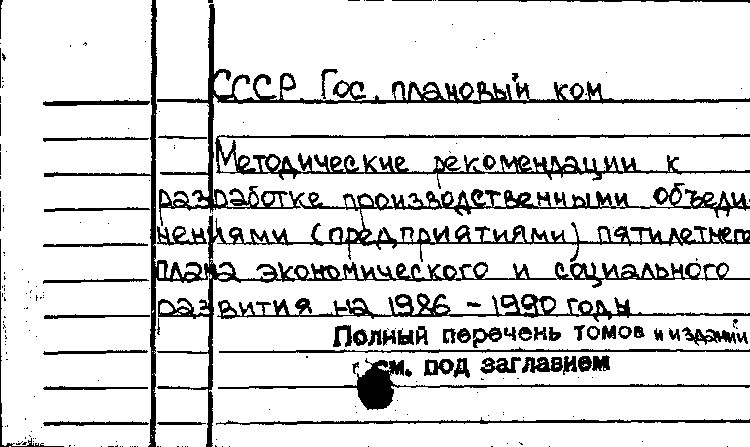 СССР. Гос. плановый ком.
Методические рекомендации к
разработке производственными объеди-
нениями (предприятиями) пятилетнего
плана экономического и социального
развития на 1986 – 1990 годы.
Полный перечень томов и изданий
см. под заглавием